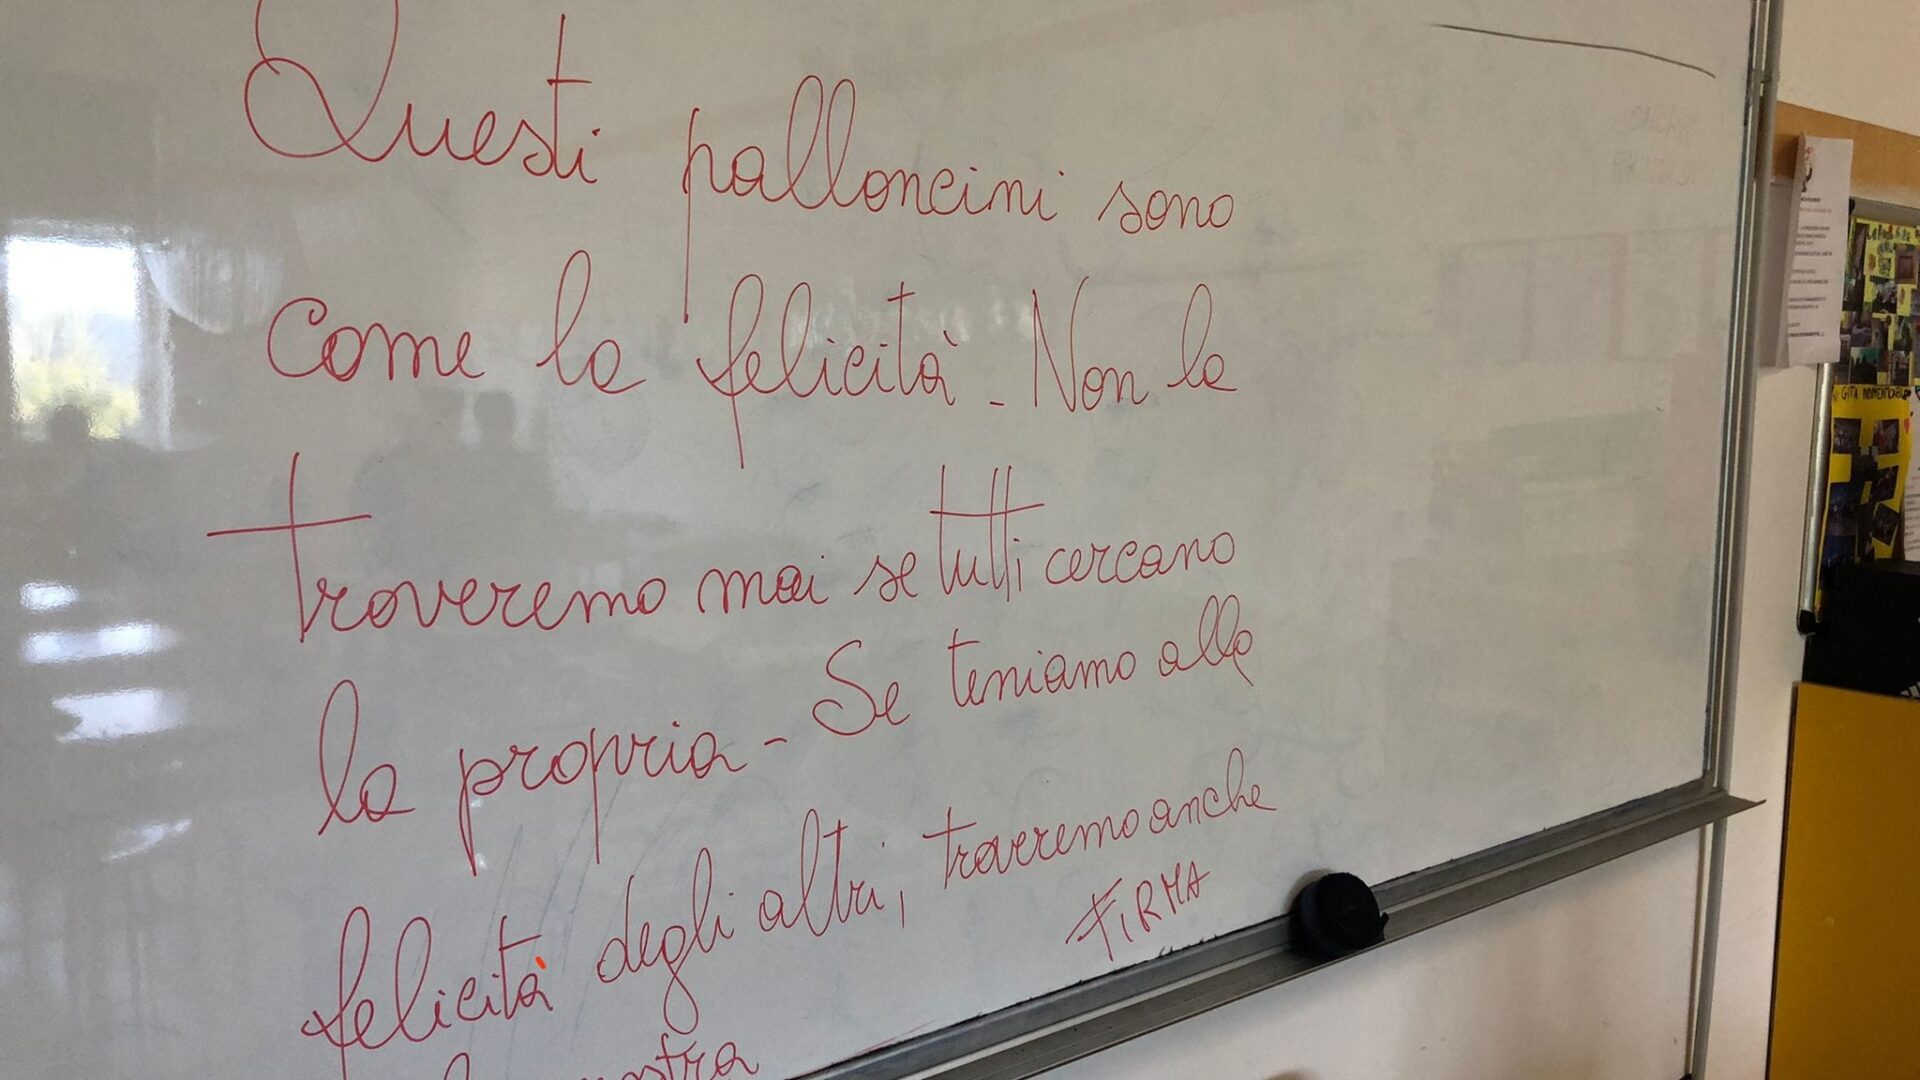 Questi palloncini sono
come la felicità - Non la
troveremo mai se tutti cercano
la propria - Se teniamo alla
felicità degli altri, troveremo anche
la nostra
FIRMA
GITA